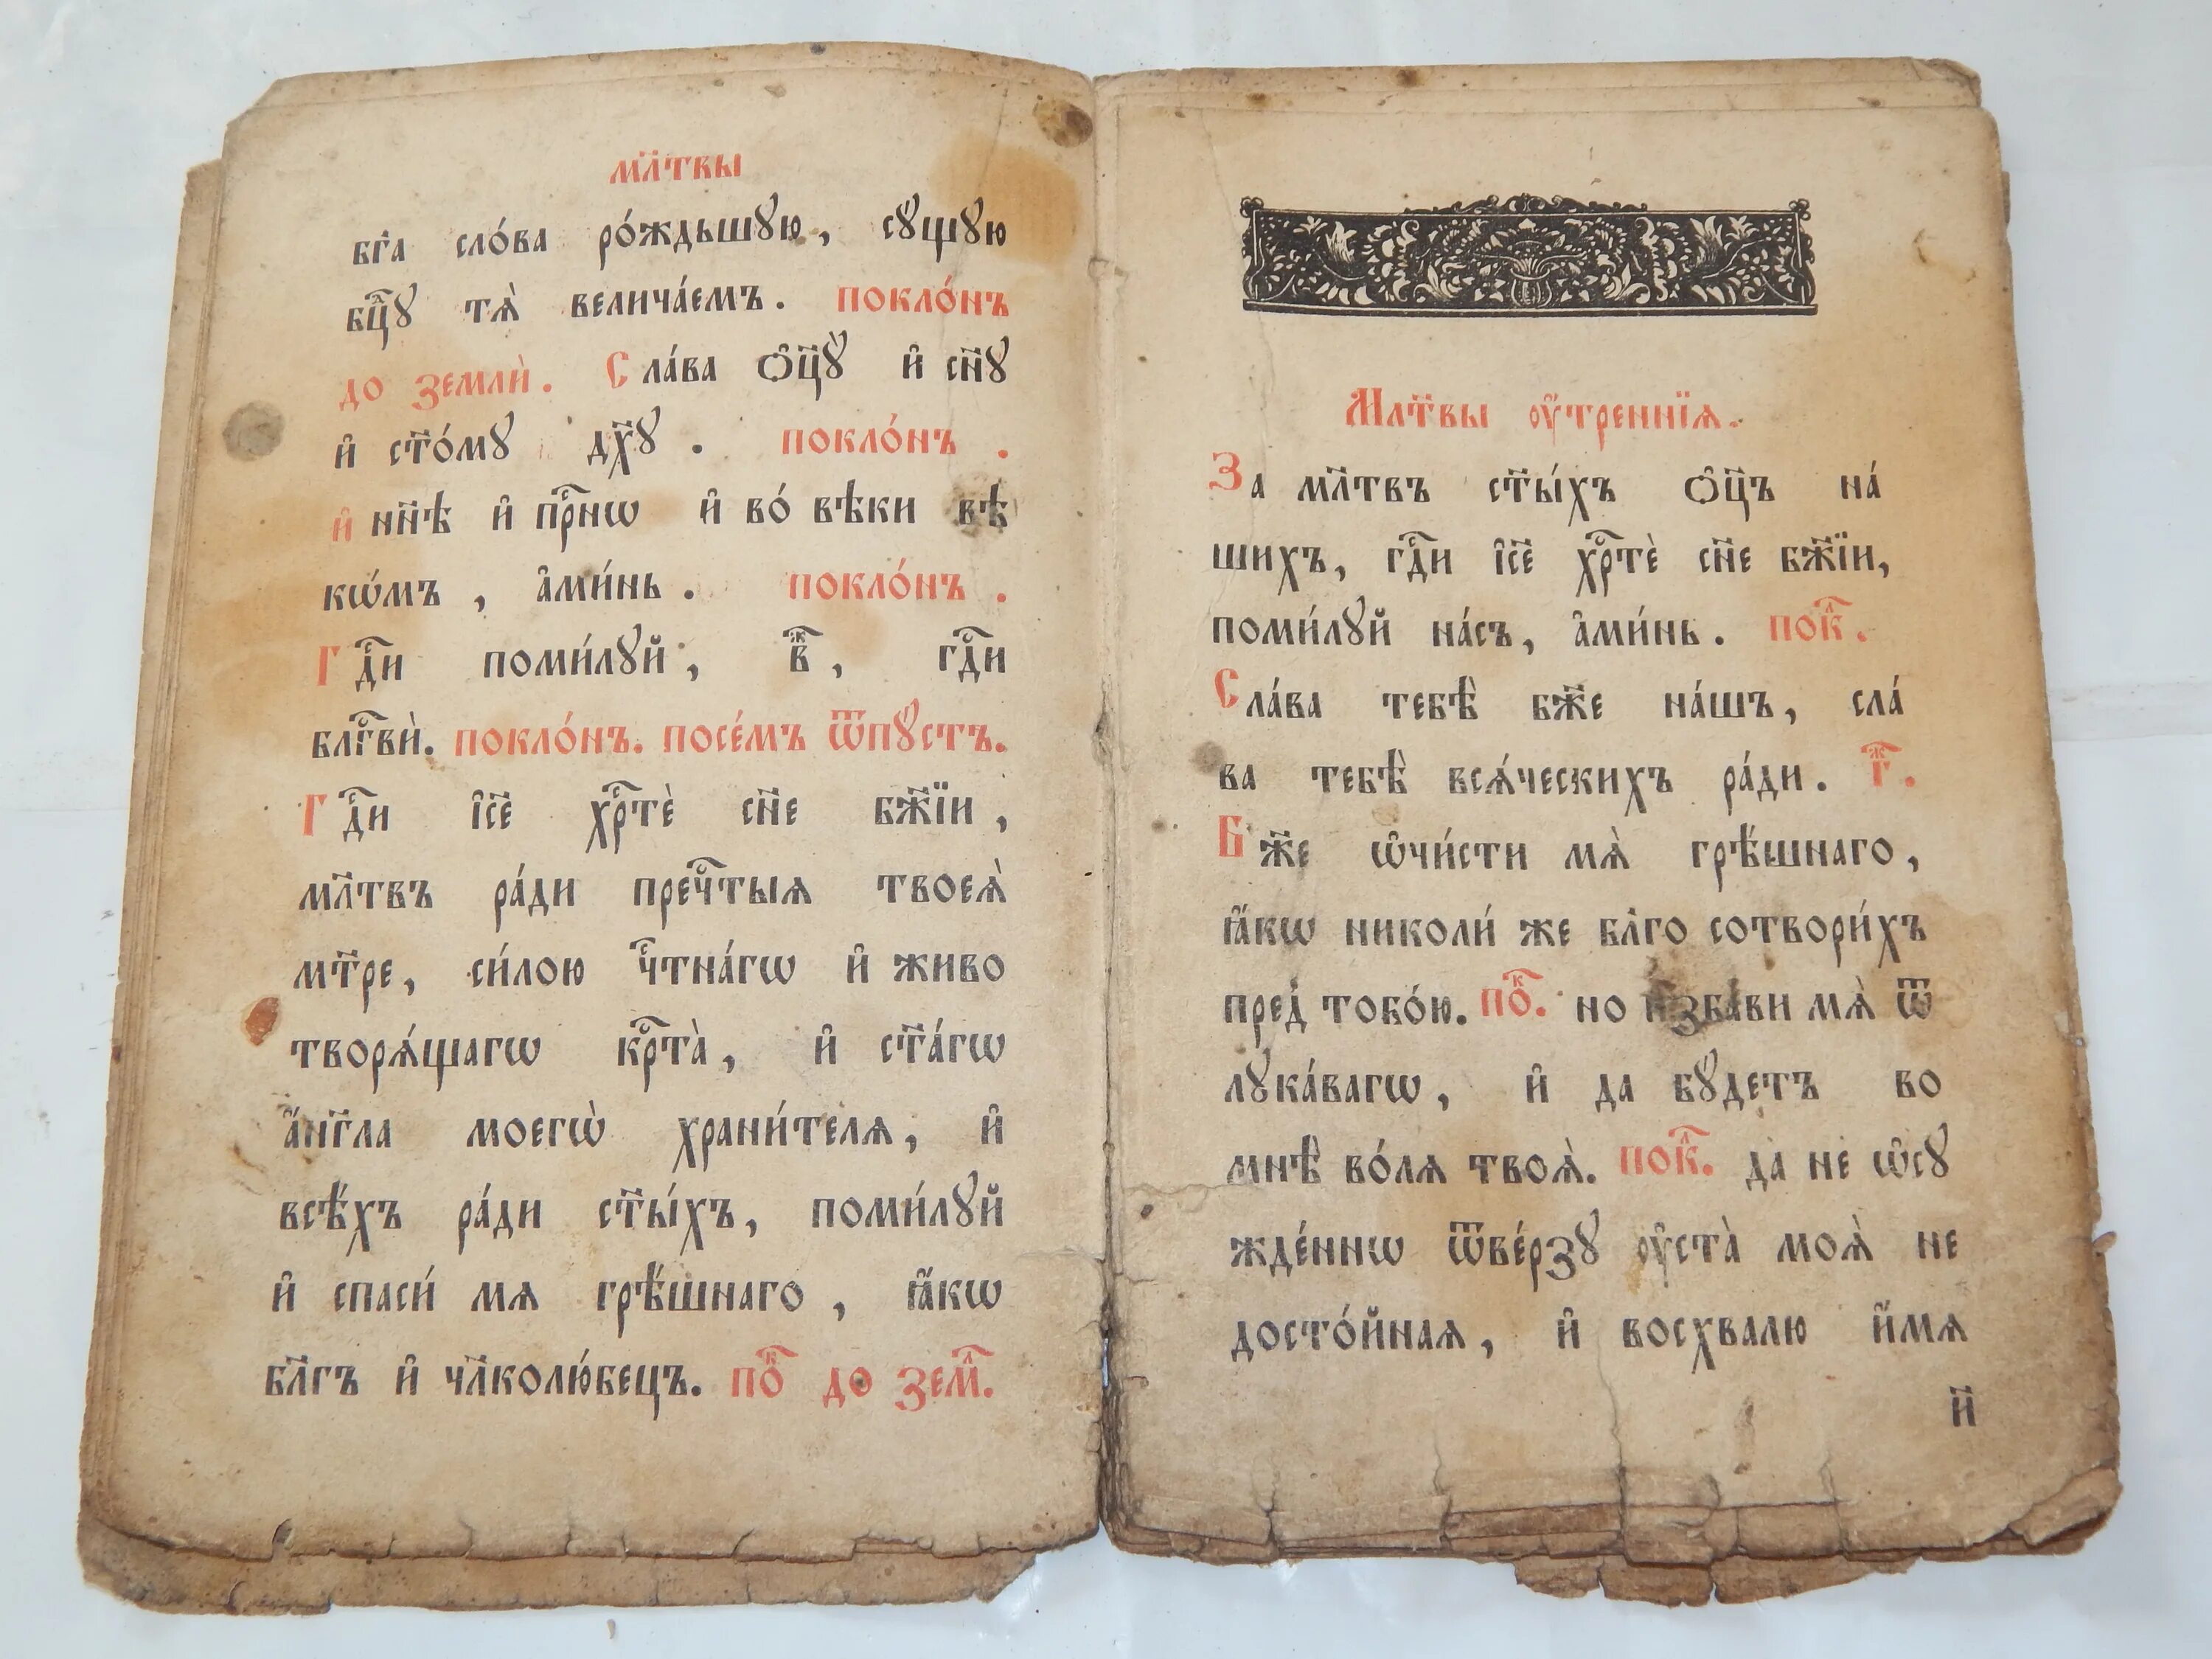 мл҃твы
бг҃а сло́ва ро́ждьшꙋю, сꙋ́щꙋю
бцⷣꙋ тѧ̀ велича́емъ. покло́нъ
до земли̑. Сла́ва ѻ҆ц҃ꙋ̀ и҆ сн҃ꙋ
и҆ ст҃о́мꙋ дх҃ꙋ. покло́нъ.
и҆ нн҃ѣ и҆ прⷭ҇нѡ и҆ во́ вѣки вѣ
кѡ́мъ, а҆ми́нь. покло́нъ.
Гдⷭ҇и поми́лꙋй, вⷤ, гдⷭ҇и
блгⷭ҇вѝ. покло́нъ. посе́мъ ѿпꙋ́стъ.
Гдⷭ҇и і҆с҃е хрⷭ҇тѐ сн҃е бж҃їи,
мл҃твъ ра́ди пречⷭ҇тыѧ твоеѧ̀
мт҃ре, си́лою чⷭ҇тна́гѡ и҆ живо
творѧ́щагѡ крⷭ҇та̀, и҆ ст҃а́гѡ
а҆́нг҃ла моегѡ̀ храни́телѧ, и҆
всѣ́хъ ра́ди ст҃ы́хъ, поми́лꙋй
и҆ спаси́ мѧ грѣ́шнаго, ꙗ҆́кѡ
бл҃гъ и҆ чл҃колю́бецъ. поⷦ҇ до земⷧ҇.
Мл҃твы ᲂу҆́треннїѧ.
За мл҃твъ ст҃ы́хъ ѻ҆ц҃ъ на́
шихъ, гдⷭ҇и і҆с҃е хрⷭ҇тѐ сн҃е бж҃їи,
поми́лꙋй на́съ, а҆ми́нь. покⷧ҇.
Сла́ва тебѣ̀ бж҃е на́шъ, сла́
ва тебѣ̀ всѧ́ческихъ ра́ди. гⷤ.
Бж҃е ѡ҆чи́сти мѧ̀ грѣ́шнаго,
ꙗ҆́кѡ николи́ же бл҃го сотвори́хъ
пред̾ тобо́ю. поⷦ҇. но и҆зба́ви мѧ̀ ѿ
лꙋка́вагѡ, и҆ да бꙋ́детъ во
мнѣ̀ во́лѧ твоѧ̀. покⷧ҇. да не ѡ҆сꙋ
жде́ннѡ ѿве́рзꙋ ᲂу҆ста̀ моѧ̀ не
досто́йнаѧ, и҆ восхвалю и҆́мѧ
и҃